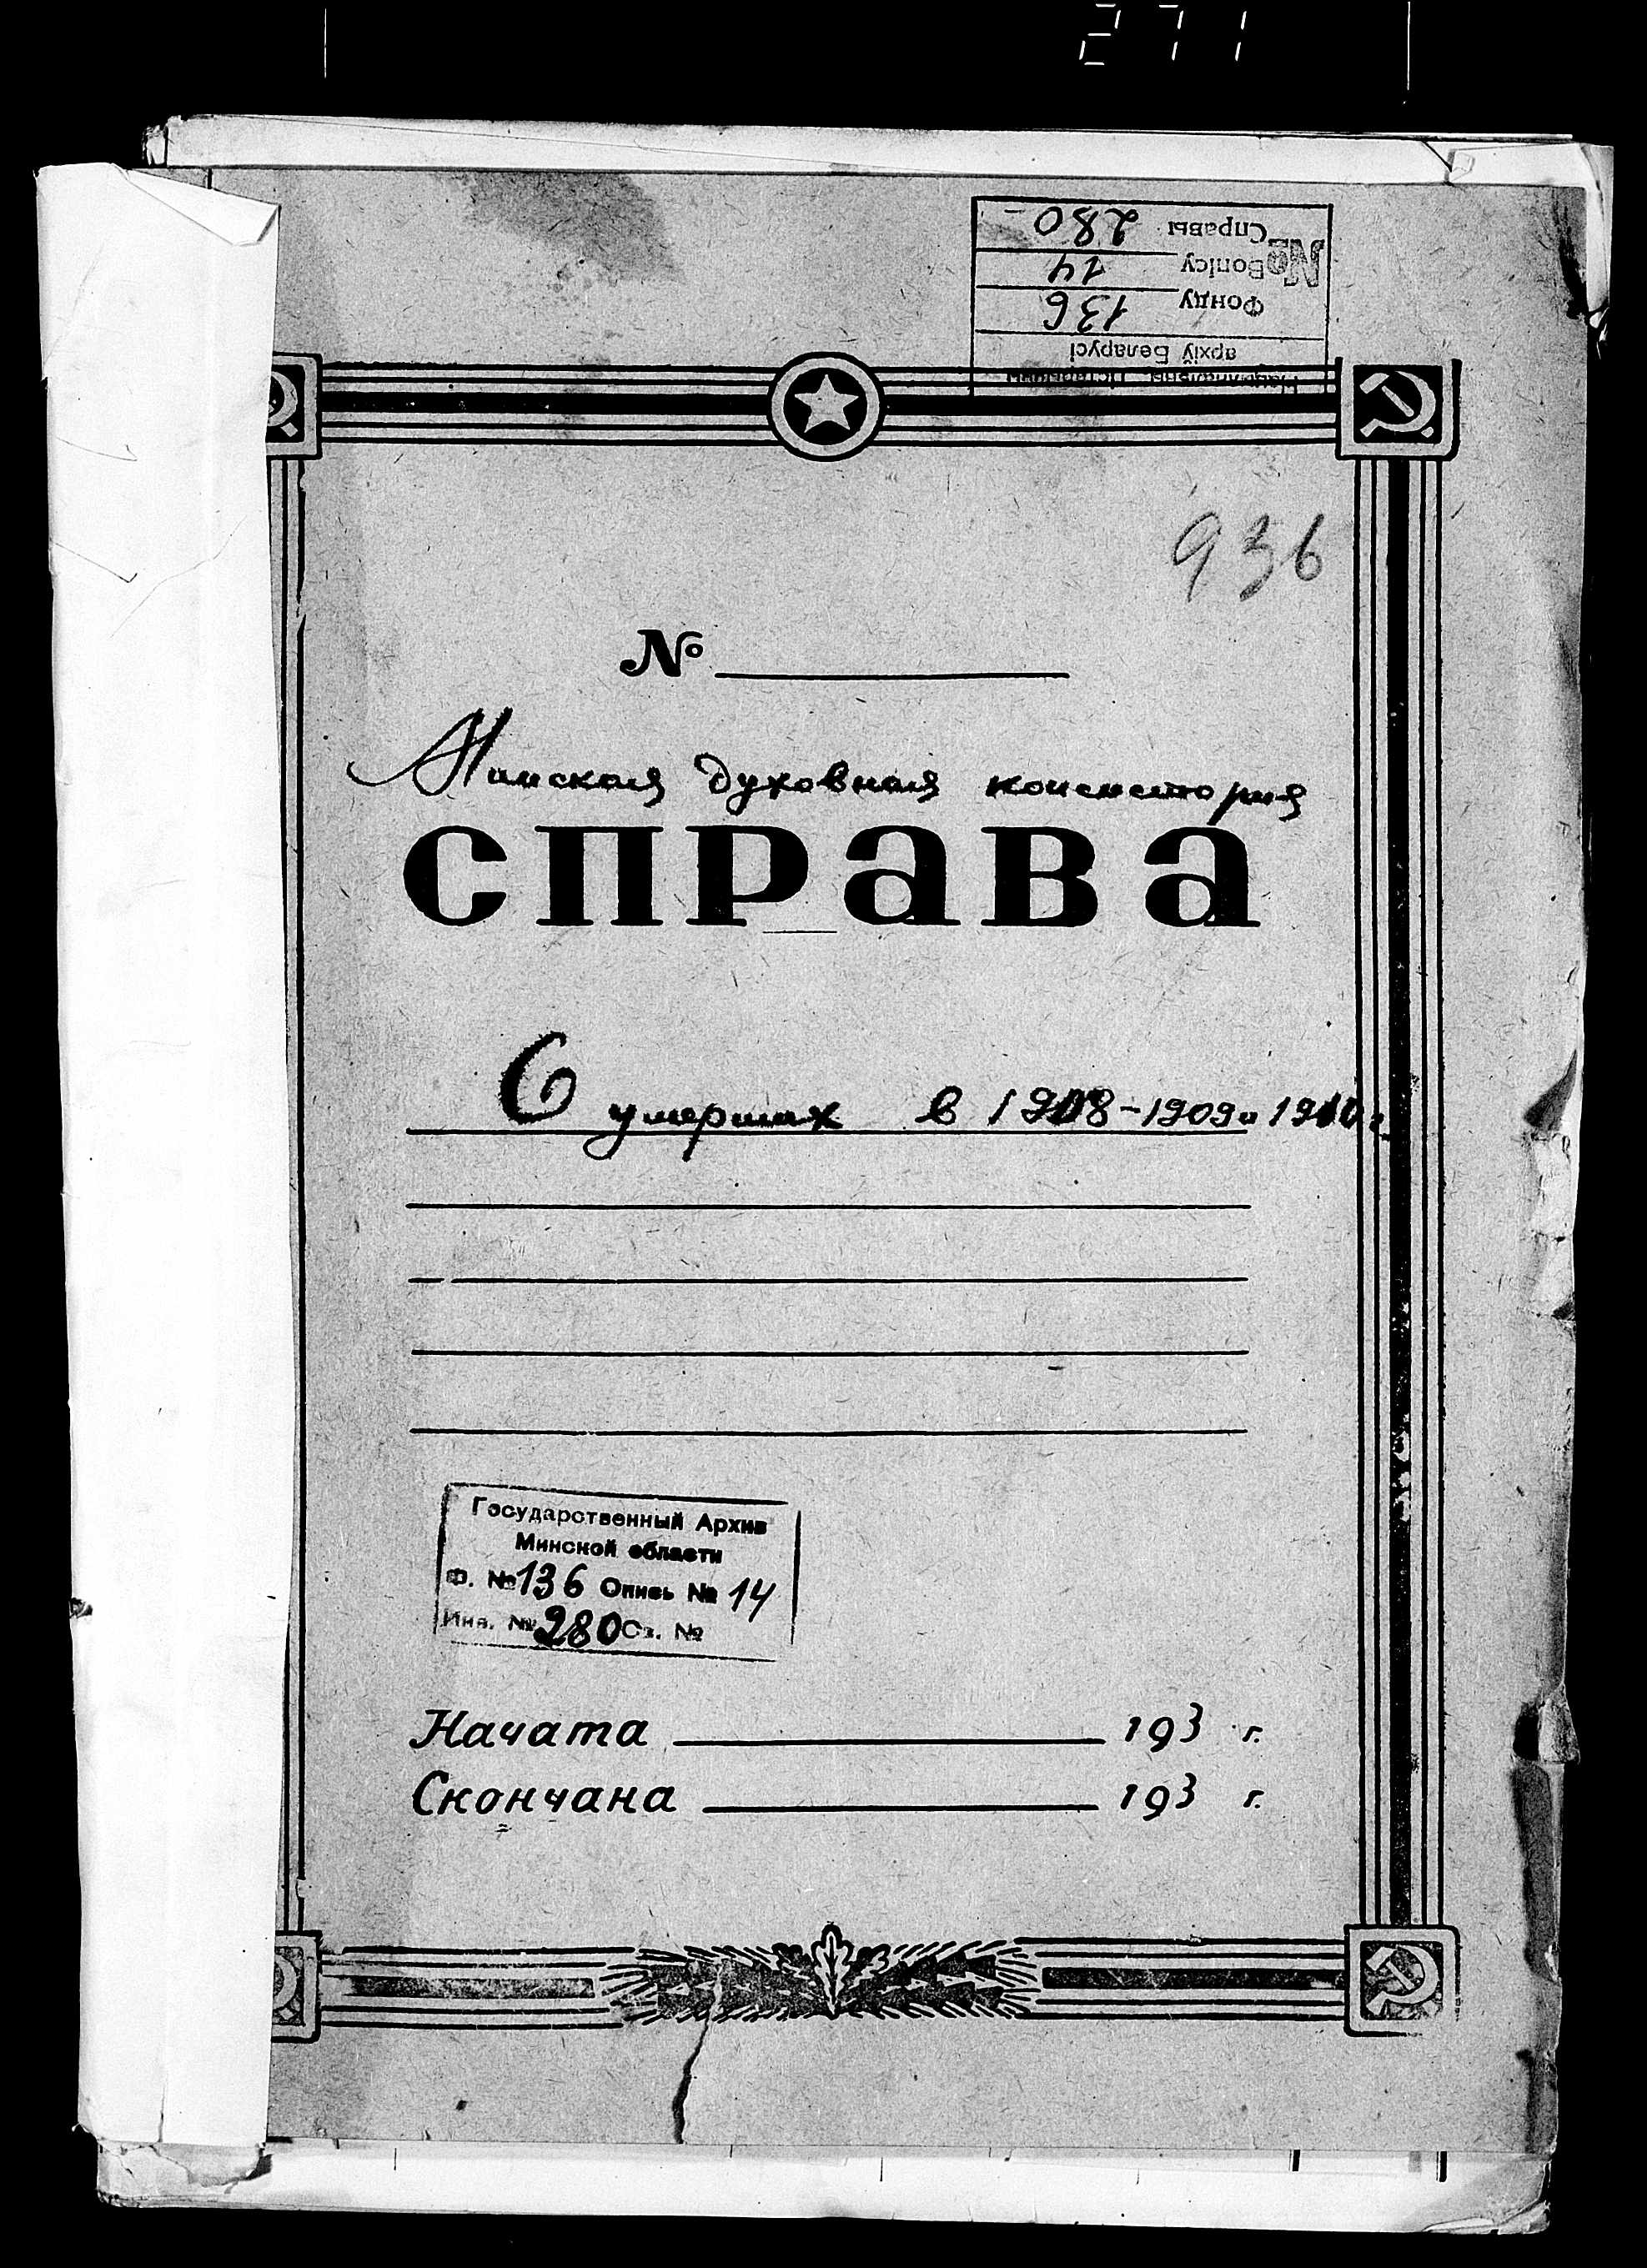 271
Нацыянальны гістарычны
архіў Беларусі
Фонду 136
№ Вопісу 14
Справы 280
936
№
Минская духовная консистория
справа
О умерших в 1908-1909 и 1910 г.
Государственный Архив
Минской области
Ф. №136 Опись № 14
Инв. №280 Св. №
Начата 193 г.
Скончана 193 г.